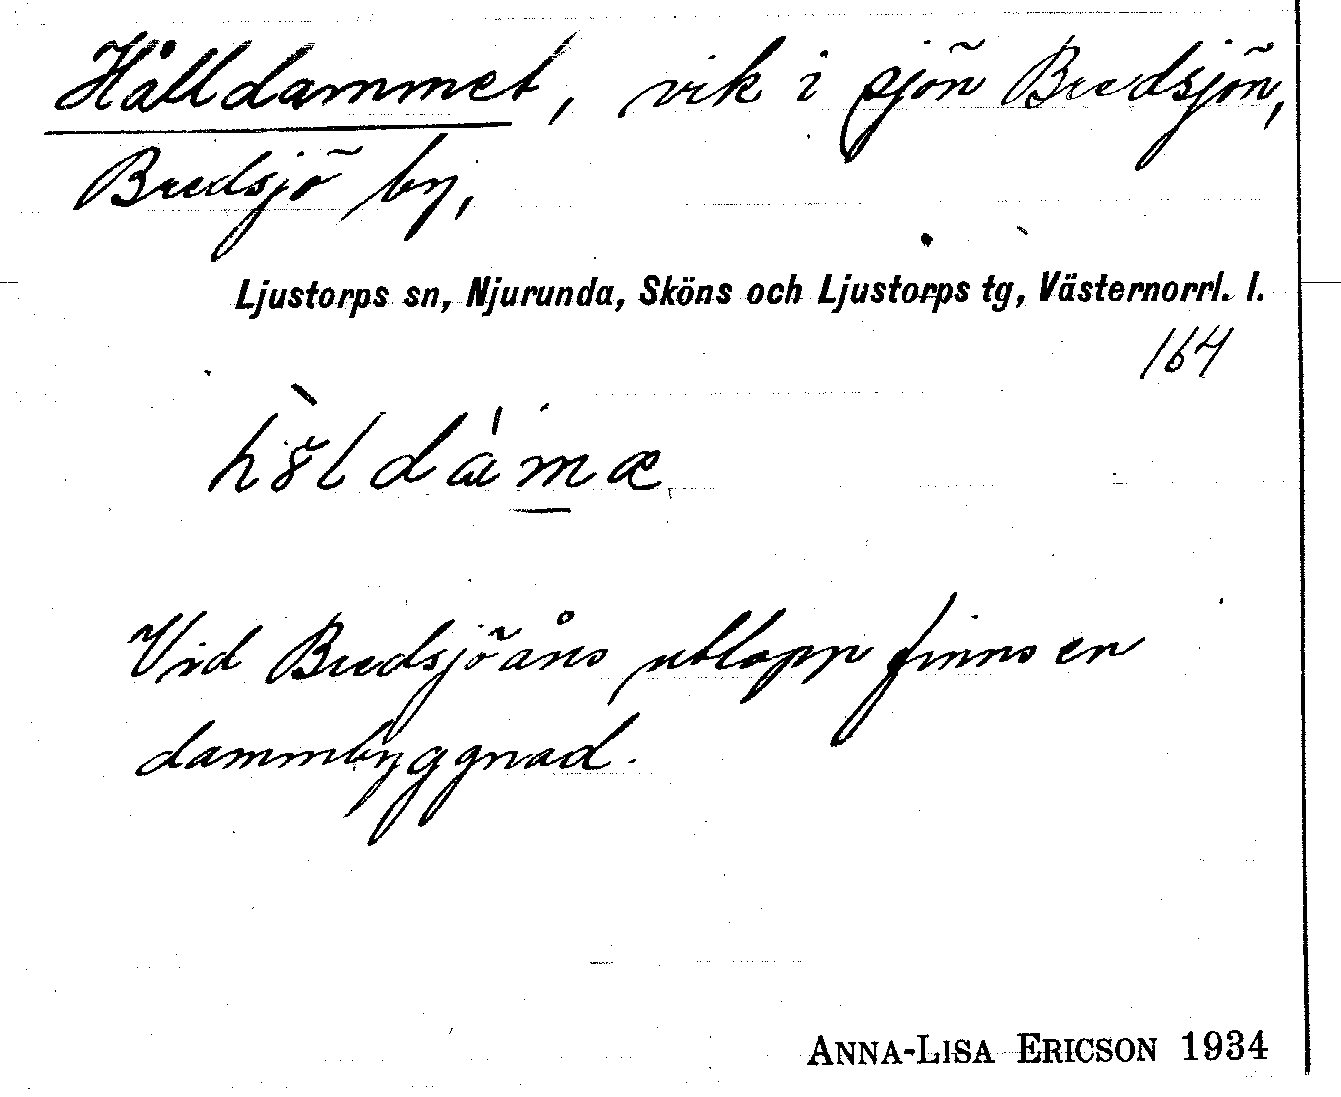 Hålldammet, vik i sjön Bredsjön,
Bredsjö by,
Ljustorps sn, Njurunda, Sköns och Ljustorps tg, Västernorrl. l.
164
Vid Bredsjöåns utlopp finns en
dammbyggnad.
ANNA-LISA ERICSON 1934